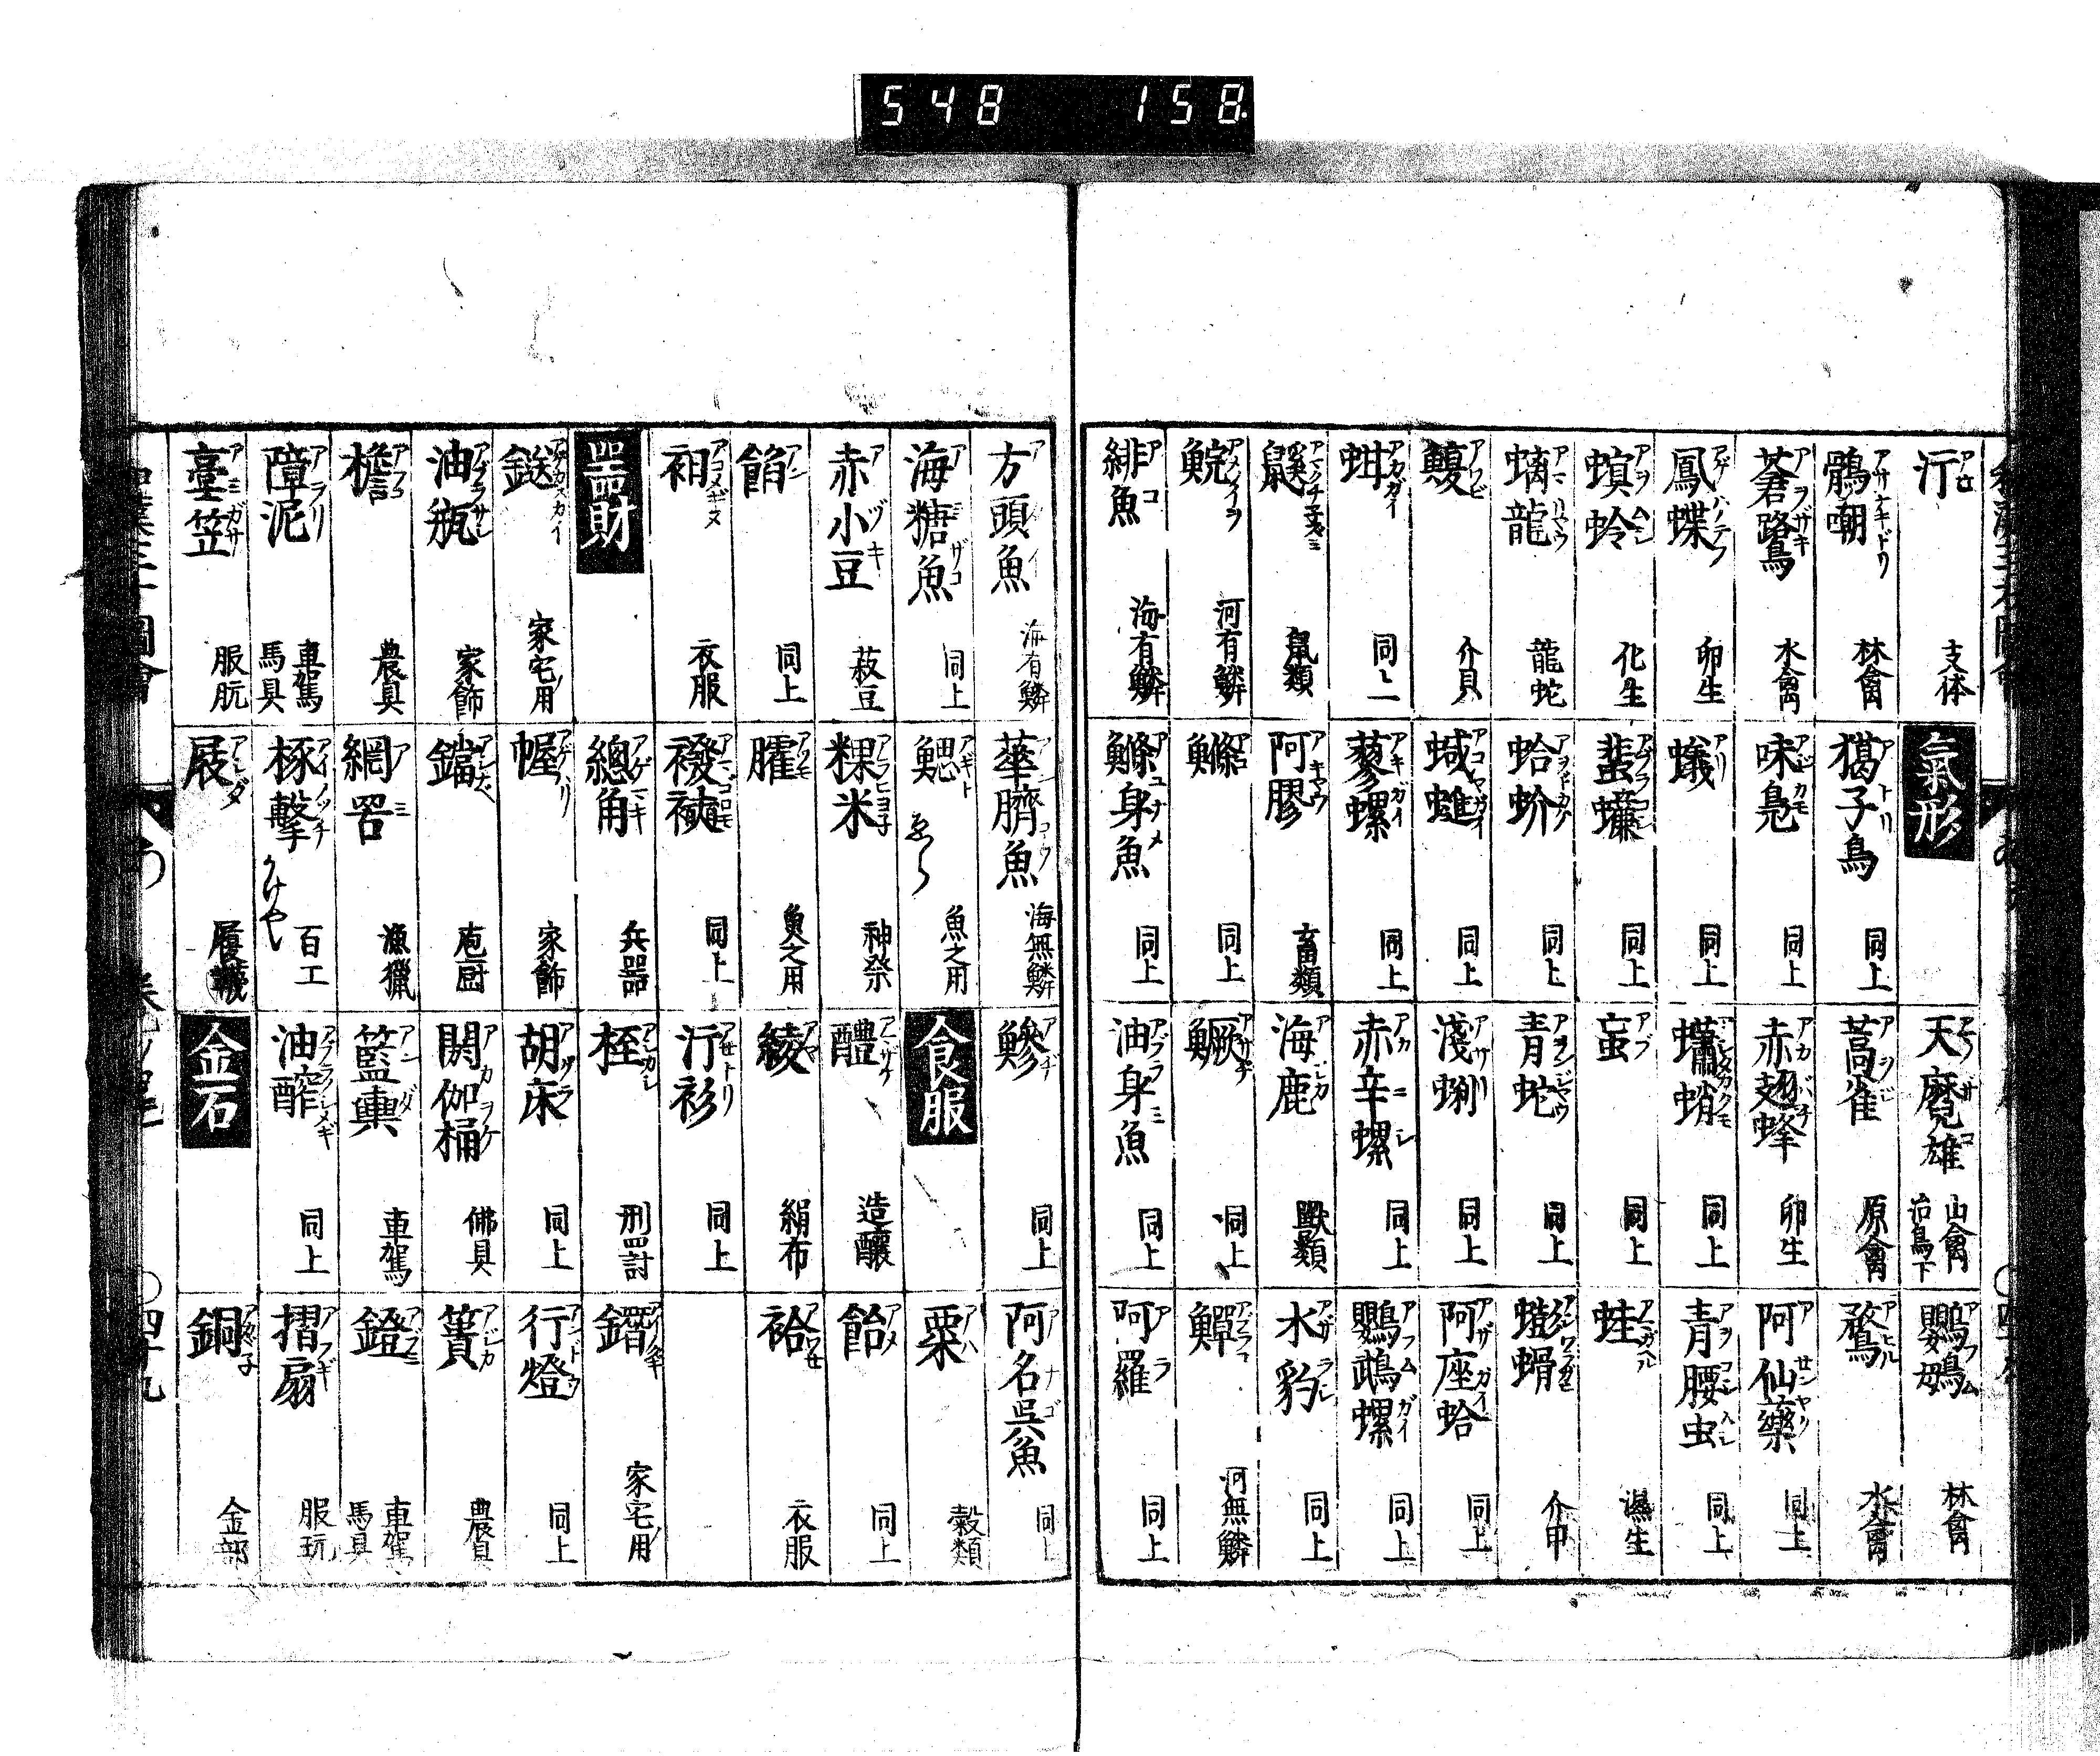 548 158
汗 アセ 支体
氣形
天魔雄 アマノザコ 山禽 治鳥下
鸚䳇 アフム 林禽
鶻嘲 アサナキドリ 林禽
獦子鳥 アトリ 同上
蒿雀 アヲジ 原禽
鶩 アヒル 水禽
蒼鷺 アヲサギ 水禽
味鳧 アヂカモ 同上
赤翅蜂 アカバチ 卵生
阿仙藥 アセンヤク 同上
鳳蝶 アゲハノテフ 卵生
蟻 アリ 同上
蠨蛸 アシタカクモ 同上
青腰虫 アヲコシムシ 同上
螟蛉 アヲムシ 化生
蜚蠊 アブラムシ 同上
蝱 アブ 同上
蛙 アマガヘル 濕生
螭龍 アマリヤウ 龍蛇
蛤蚧 アヲトカゲ 同上
青蛇 アヲンジヤウ 同上
蟛蜎 アシワラガニ 介甲
鰒 アワビ 介貝
蝛𧕴 アコヤガイ 同上
淺蜊 アサリ 同上
阿座蛤 アザガイ 同上
蚶 アカガイ 同上
蓼螺 アキガイ 同上
赤辛螺 アカニシ 同上
鸚鵡螺 アフムガイ 同上
鼷 アマクチネズミ 鼠類
阿膠 アキヤウ 畜類
海鹿 アシカ 獸類
水豹 アザラシ 同上
鯇 アメノイヲ 河有鱗
鰷 アユ 同上
鱖 アサヂ 同上
鱓 アブラコ 河無鱗
緋魚 アコ 海有鱗
鰷身魚 アユナメ 同上
油身魚 アブラミ 同上
呵羅 アラ 同上
方頭魚 アマダイ 海有鱗
華臍魚 アンコウ 海無鱗
鯵 アヂ 同上
阿名呉魚 アナゴ 同上
海糖魚 アミザコ 同上
鰓 アギト ゑら 魚之用
食服
粟 アハ 穀類
赤小豆 アヅキ 菽豆
粿米 アラヒヨネ 神祭
醴 アマザケ 造釀
飴 アメ 同上
餡 アン 同上
臛 アツモノ 魚之用
綾 アヤ 絹布
袷 アワセ 衣服
衵 アコメギヌ 衣服
襏襫 アマゴロモ 同上
汗衫 アセトリ 同上
器財
總角 アゲマキ 兵器
桎 アシカシ 刑罰
家宅ノ用
家宅ノ用
幄 アゲハリ 家飾
胡床 アグラ 同上
行燈 アンドウ 同上
油瓶 アブラサシ 家飾
鐺 アシナベ 庖厨
閼伽桶 アカヲケ 佛具
簣 アジカ 農具
檐 アフコ 農具
網罟 アミ 漁獵
籃輿 アンダ 車駕
鐙 アブミ 車駕 馬具
障泥 アヲリ 車駕 馬具
椓擊 アイノツチ かけや 百工
油醡 アブラシメギ 同上
摺扇 アフギ 服玩
臺笠 アミガサ 服玩
屐 アシダ 履襪
金石
銅 アカガネ 金部
四十九